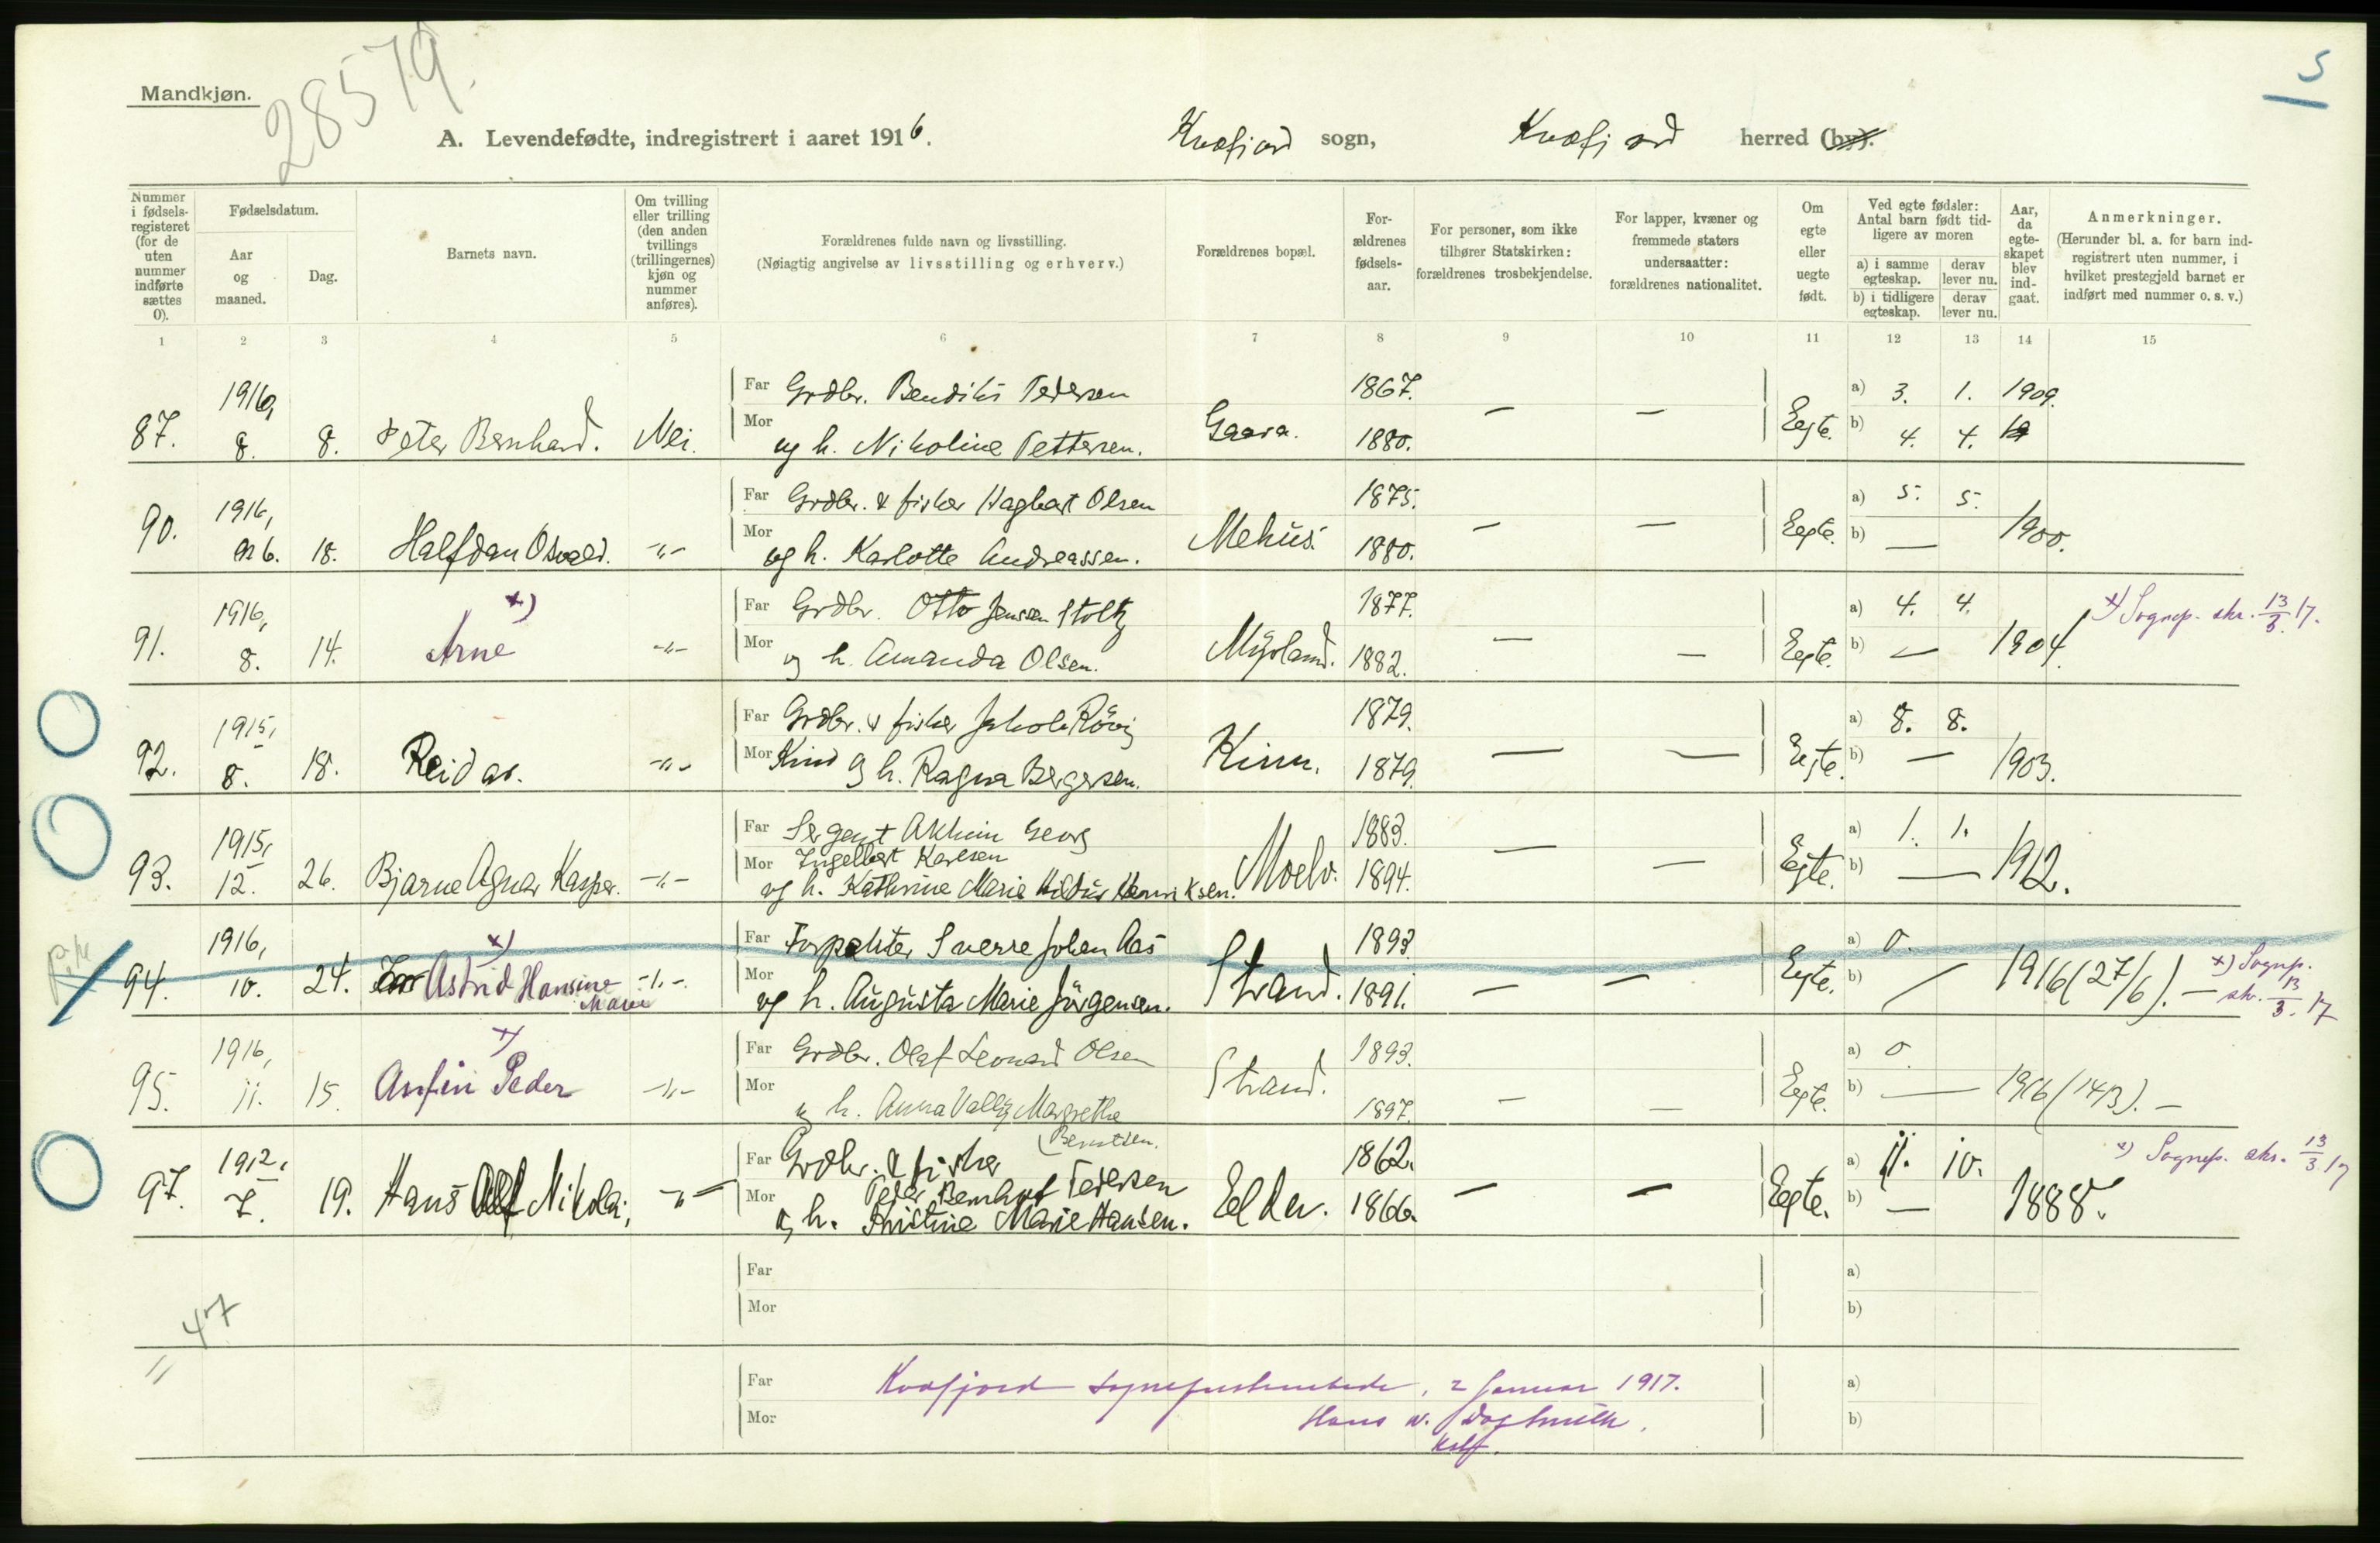 Mandkjøn.
28579.
5
A. Levendefødte, indregistrert i aaret 1916.
Kvæfjord sogn, Kvæfjord herred (by).
Nummer i fødsels-registeret (for de uten nummer indførte sættes 0).
Fødselsdatum.
Aar og maaned.
Dag.
Barnets navn.
Om tvilling eller trilling (den anden tvillings (trillingernes) kjøn og nummer anføres).
Forældrenes fulde navn og livsstilling.
(Nøiagtig angivelse av livsstilling og erhverv.)
Forældrenes bopæl.
For-ældrenes fødsels-aar.
For personer, som ikke tilhører Statskirken: forældrenes trosbekjendelse.
For lapper, kvæner og fremmede staters undersaatter: forældrenes nationalitet.
Om egte eller uegte født.
Ved egte fødsler: Antal barn født tid-ligere av moren
a) i samme egteskap.
derav lever nu.
b) i tidligere egteskap.
derav lever nu.
Aar, da egte-skapet blev ind-gaat.
Anmerkninger.
(Herunder bl. a. for barn ind-registrert uten nummer, i hvilket prestegjeld barnet er indført med nummer o. s. v.)
1 2 3 4 5 6 7 8 9 10 11 12 13 14 15
87. 1916, 8. 8. Peter Bernhard. Nei.
Far Grdbr. Bendiks Pedersen 1867. a) 3. 1. 1909.
Mor og h. Nikoline Pettersen. Gaara. 1880. — — Egte. b) 4. 4.
90. 1916, 6. 18. Halfdan Osvald. -"-
Far Grdbr. & fisker Hagbart Olsen 1875. a) 5. 5.
Mor og h. Karlotte Andreassen. Mehus. 1880. — — Egte. b) — 1900.
91. 1916, 8. 14. Arne x) -"-
Far Grdbr. Otto Jenssen Stoltz 1877. a) 4. 4. x) Sognep. skr. 13/3.17.
Mor og h. Amanda Olsen. Myrland. 1882. — — Egte. b) — 1904.
92. 1915, 8. 18. Reidar. -"-
Far Grdbr. & fisker Jakob Røvig 1879. a) 8. 8.
Mor Kind og h. Ragna Bergersen. Kinn. 1879. — — Egte. b) — 1903.
93. 1915, 12. 26. Bjarne Agnar Kasper. -"-
Far Sergent Akhim Georg 1883. a) 1. 1.
Ingelbert Karlsen
Mor og h. Kathrine Marie Hildus Henriksen. Moelv. 1894. — — Egte. b) — 1912.
94. 1916, 10. 24. x) Astrid Hansine Marie -"-
Far Forpakter Sverre Johan Aas 1893. a) 0.
Mor og h. Augusta Marie Jørgensen. Strand. 1891. — — Egte. b) — 1916 (27/6). — x) Sognep. skr. 13/3.17
95. 1916, 11. 15. x) Anfin Peder -"-
Far Grdbr. Olaf Leonard Olsen 1893. a) 0.
Mor og h. Anna Vally Margrethe Berntsen. Strand. 1897. — — Egte. b) — 1916 (14/3). —
97. 1912, 7. 19. Hans Alf Nikolai, -"-
Far Grdbr. & fisker 1862. a) 11. 10. x) Sognep. skr. 13/3.17
Peder Bernhof Pedersen
Mor og h. Kristine Marie Hansen. Elde. 1866. — — Egte. b) — 1888.
Far a)
Mor b)
47
Far Kvæfjord sogneprestembede, 2 januar 1917. a)
Mor b)